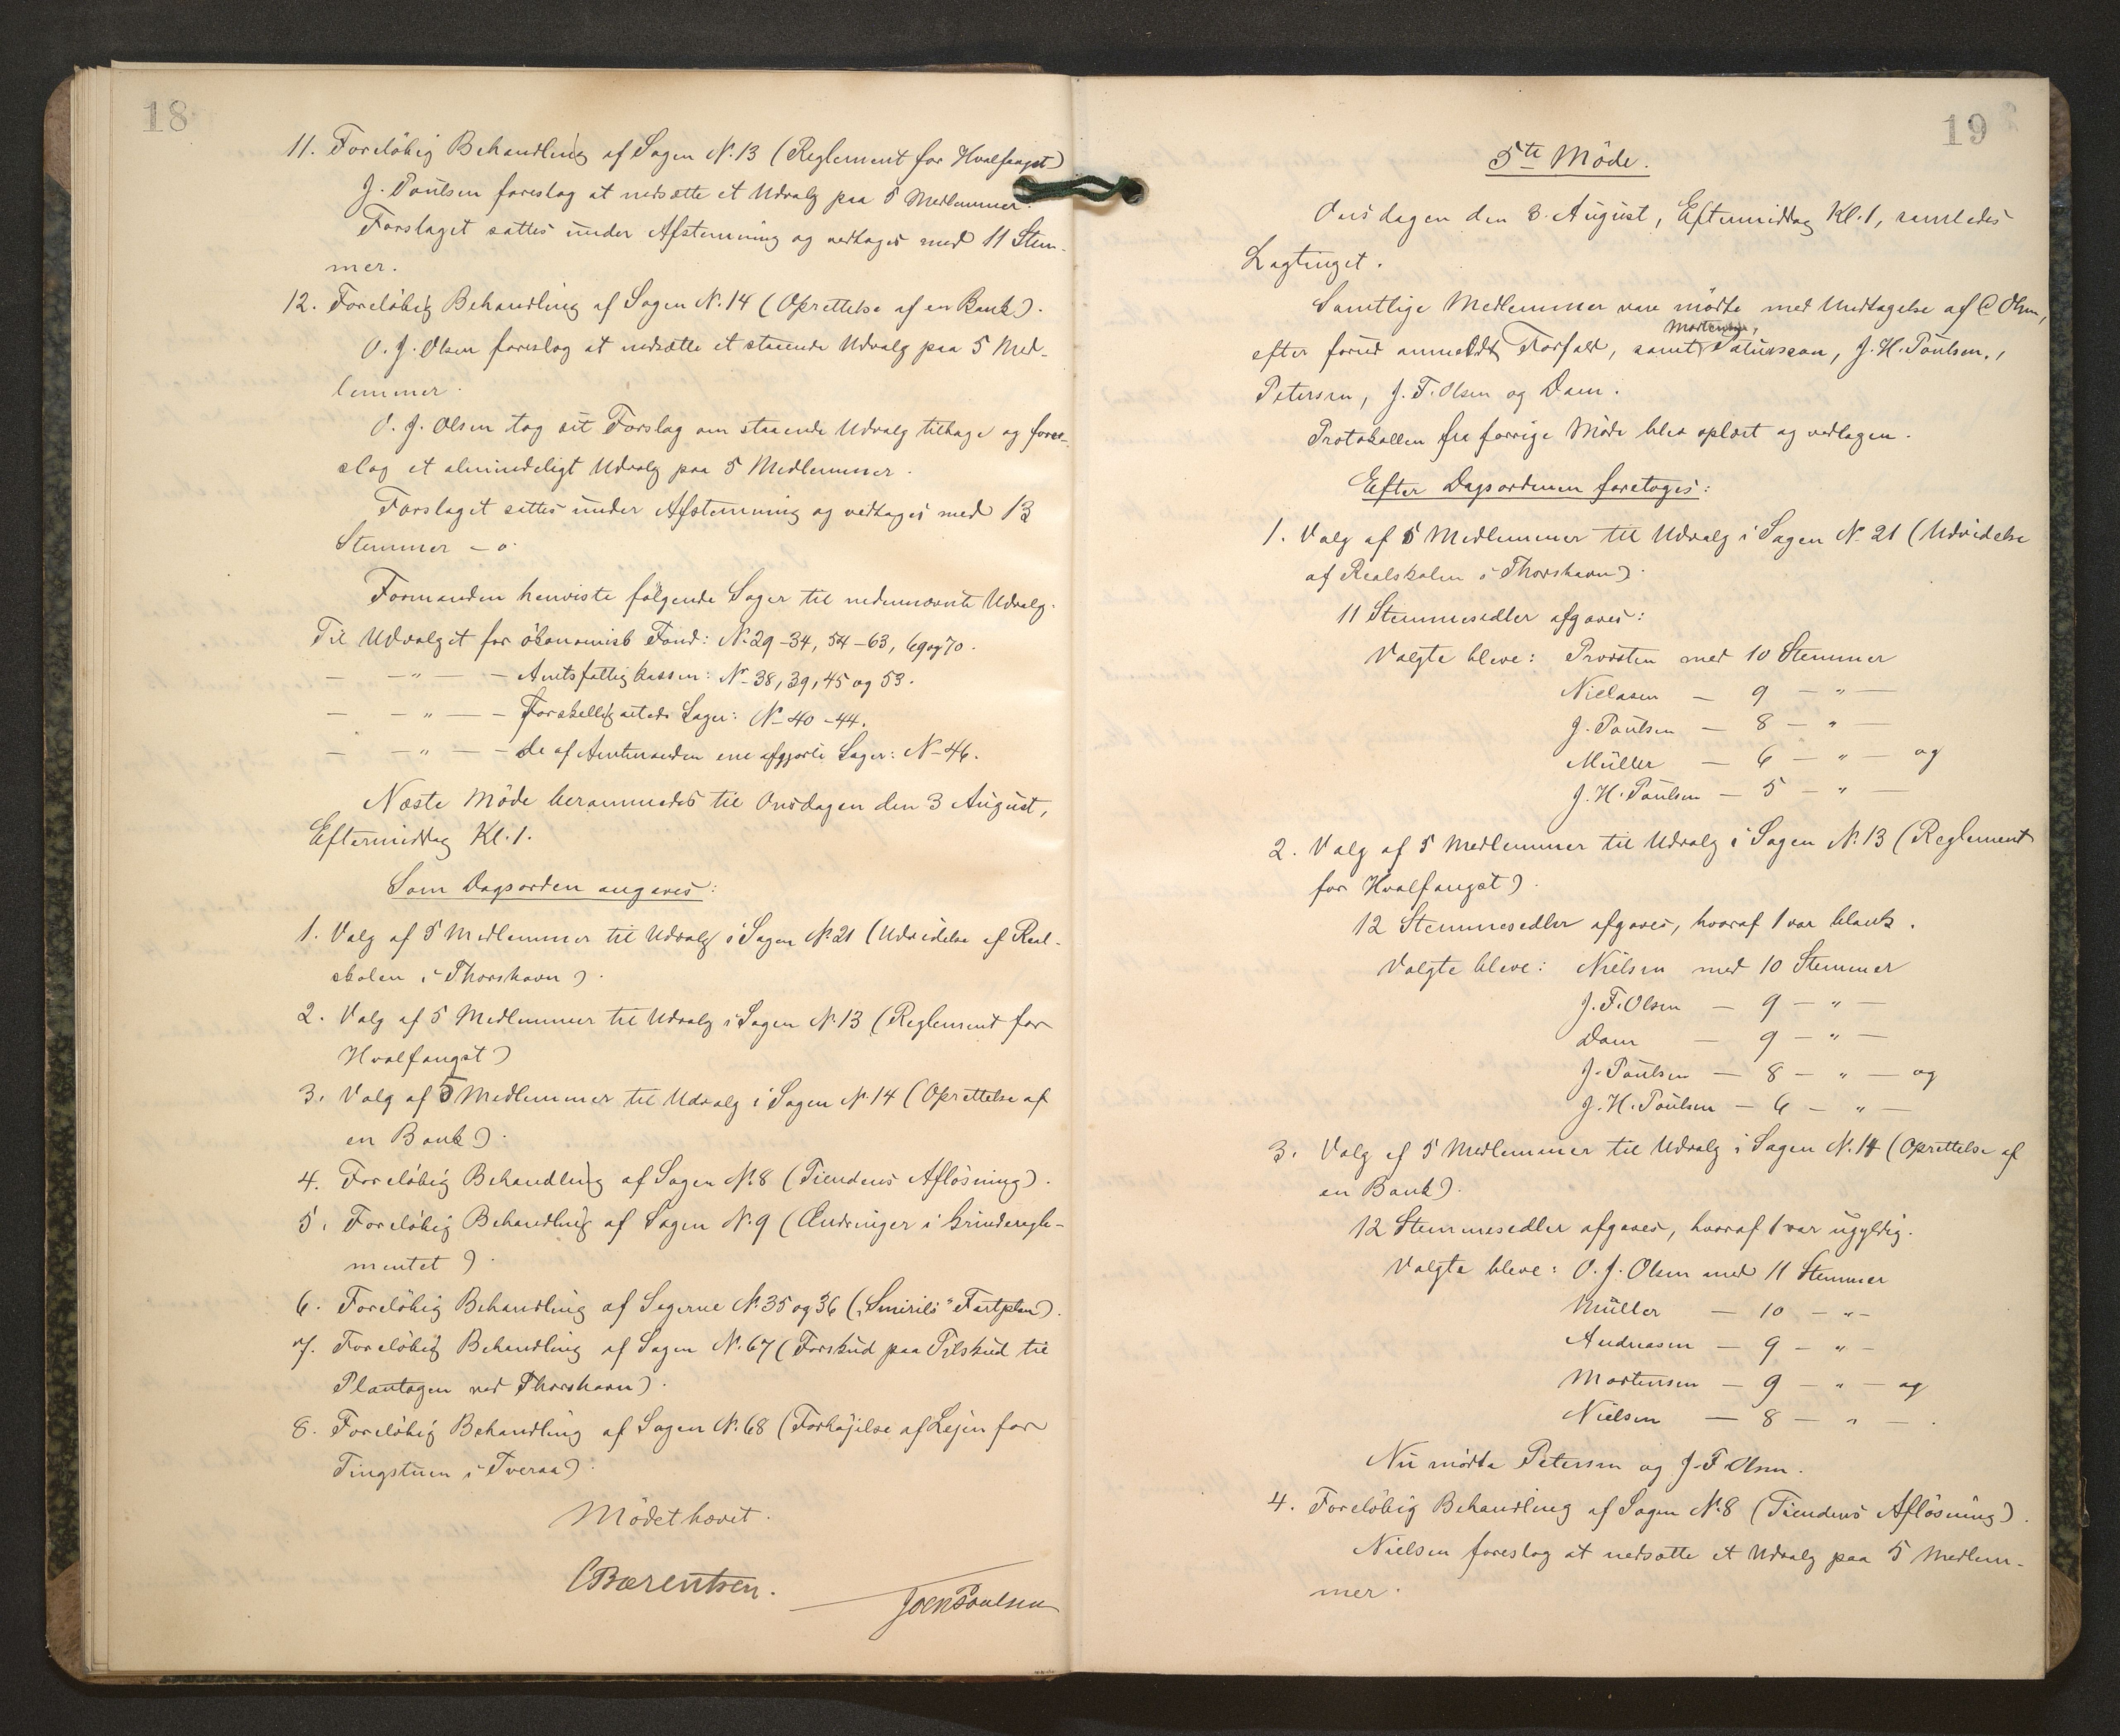 18
11. Foreløbig Behandling af Sagen N. 13 (Reglement for Hvalfangst)
J. Poulsen foreslog at nedsætte et Udvalg paa 5 Medlemmer.
Forslaget sattes under Afstemning og vedtoges med 11 Stem-
mer.
12. Foreløbig Behandling af Sagen N. 14 (Oprettelse af en Bank).
O. J. Olsen foreslog at nedsætte et staaende Udvalg paa 5 Med-
lemmer.
O. J. Olsen tog sit Forslag om staaende Udvalg tilbage og fore-
slog et almindeligt Udvalg paa 5 Medlemmer.
Forslaget sattes under Afstemning og vedtoges med 13
Stemmer – 0.
Formanden henviste følgende Sager til nedennævnte Udvalg.
Til Udvalget for økonomisk Fond: N. 29–34, 54–63, 69 og 70.
— — „ — — Amtsfattigkassen: N– 38, 39, 45 og 53.
— — „ — — Forskelligartede Sager: N– 40–44.
— — „ — — de af Amtmanden ene afgjorte Sager: N– 46.
Næste Møde berammedes til Onsdagen den 3 August,
Eftermiddag Kl. 1.
Som Dagsorden angaves:
1. Valg af 5 Medlemmer til Udvalg i Sagen N. 21 (Udvidelse af Real-
skolen i Thorshavn).
2. Valg af 5 Medlemmer til Udvalg i Sagen N. 13 (Reglement for
Hvalfangst)
3. Valg af 5 Medlemmer til Udvalg i Sagen N. 14 (Oprettelse af
en Bank).
4. Foreløbig Behandling af Sagen N. 8 (Tiendens Afløsning).
5. Foreløbig Behandling af Sagen N. 9 (Ændringer i Grinderegle-
mentet).
6. Foreløbig Behandling af Sagerne N. 35 og 36 („Smirils" Fartplan).
7. Foreløbig Behandling af Sagen N. 67 (Forskud paa Tilskud til
Plantagen ved Thorshavn).
8. Foreløbig Behandling af Sagen N. 68 (Forhøjelse af Lejen for
Tingstuen i Tveraa).
Mødet hævet.
CBærentsen.
Joen Poulsen
19
5te Møde.
Onsdagen den 3. August, Eftermiddag Kl. 1, samledes
Lagtinget.
Samtlige Medlemmer vare mødte med Undtagelse af C Olsen,
efter forud anmeldt Forfald, samt Mortensen, Patursson, J. H. Poulsen,
Petersen, J. F. Olsen og Dam.
Protokollen fra forrige Møde blev oplæst og vedtagen.
Efter Dagsordenen foretoges:
1. Valg af 5 Medlemmer til Udvalg i Sagen N– 21 (Udvidelse
af Realskolen i Thorshavn).
11 Stemmesedler afgaves:
Valgte bleve: Provsten med 10 Stemmer
Nielsen — 9 — „ —
J. Poulsen — 8 — „ —
Müller — 6 — „ — og
J. H. Poulsen — 5 — „ —
2. Valg af 5 Medlemmer til Udvalg i Sagen N. 13 (Reglement
for Hvalfangst).
12 Stemmesedler afgaves, hvoraf 1 var blank.
Valgte bleve: Nielsen med 10 Stemmer
J. F. Olsen — 9 — „ —
Dam — 9 — „ —
J. Poulsen — 8 — „ — og
J. H. Poulsen — 6 — „ —
3. Valg af 5 Medlemmer til Udvalg i Sagen N. 14 (Oprettelse af
en Bank).
12 Stemmesedler afgaves, hvoraf 1 var ugyldig.
Valgte bleve: O. J. Olsen med 11 Stemmer
Müller — 10 — „ —
Andreasen — 9 — „ —
Mortensen — 9 — „ — og
Nielsen — 8 — „ — .
Nu mødte Petersen og J. F. Olsen.
4. Foreløbig Behandling af Sagen N. 8 (Tiendens Afløsning).
Nielsen foreslog at nedsætte et Udvalg paa 5 Medlem-
mer.